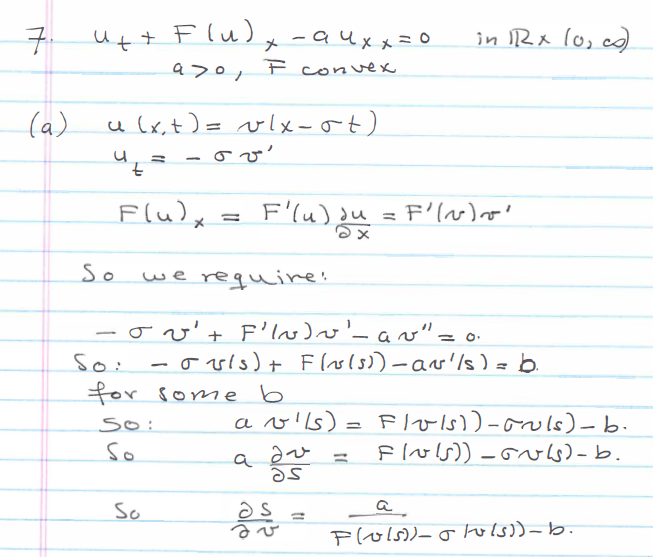 7. u_t + F(u)_x - a u_xx = 0 in ℝ x (0, ∞)
a > 0, F convex
(a) u(x,t) = v(x - σt)
u_t = - σ v'
F(u)_x = F'(u) ∂u/∂x = F'(v)v'
So we require:
- σ v' + F'(v)v' - a v'' = 0.
So: - σ v(s) + F(v(s)) - av'(s) = b.
for some b
so: a v'(s) = F(v(s)) - σv(s) - b.
So a ∂v/∂s = F(v(s)) - σv(s) - b.
So ∂s/∂v = a/(F(v(s)) - σ(v(s)) - b.